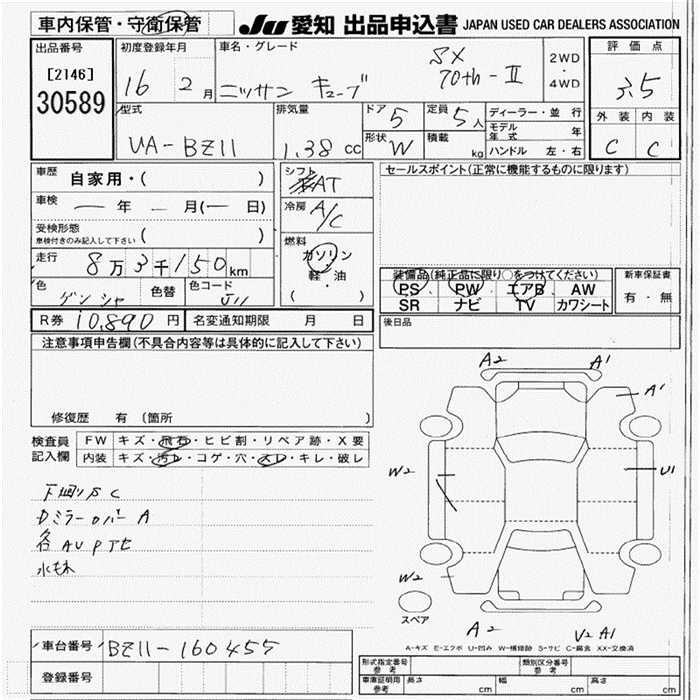 車内保管・守衛保管
JU 愛知 出品申込書 JAPAN USED CAR DEALERS ASSOCIATION
出品番号
[2146]
30589
初度登録年月
16 2月
車名・グレード
ニッサン キューブ
SX
70th-II
2WD
・
4WD
評価点
3.5
外装 内装
C C
型式
UA-BZ11
排気量
1.38 cc
ドア 5
定員 5人
形状 W
積載 kg
ディーラー・並行
モデル年式 年
ハンドル 左・右
車歴 自家用・( )
車検 ー年 ー月(ー日)
受検形態
車検付きのみ記入して下さい ( )
走行 8万3千150km
色
色替
色コード
J11
シフト
AT
冷房 A/C
燃料
ガソリン
・
軽・油
( )
セールスポイント(正常に機能するものに限ります)
装備品(純正品に限り○をつけてください)
PS PW エアB AW
SR ナビ TV カワシート
新車保証書
有・無
後日品
R券 10,890円
名変通知期限 月 日
注意事項申告欄(不具合内容等は具体的に記入して下さい)
修復歴 有 (箇所 )
検査員
記入欄
FW キズ・飛石・ヒビ割・リペア跡・X要
内装 キズ・汚レ・コゲ・穴・スレ・キレ・破レ
下廻りSC
DミラーカバーA
各AUPアセ
A2 A1
A1
W2
U1
W2
スペア
A2
V2 A1
A-キズ E-エクボ U-凹み W-補修跡 S-サビ C-腐食 XX-交換済
車台番号 BZ11-160455
登録番号
形式指定番号
参考
類別区分番号
参考
車庫証明用
参考
長さ cm
幅 cm
高さ cm